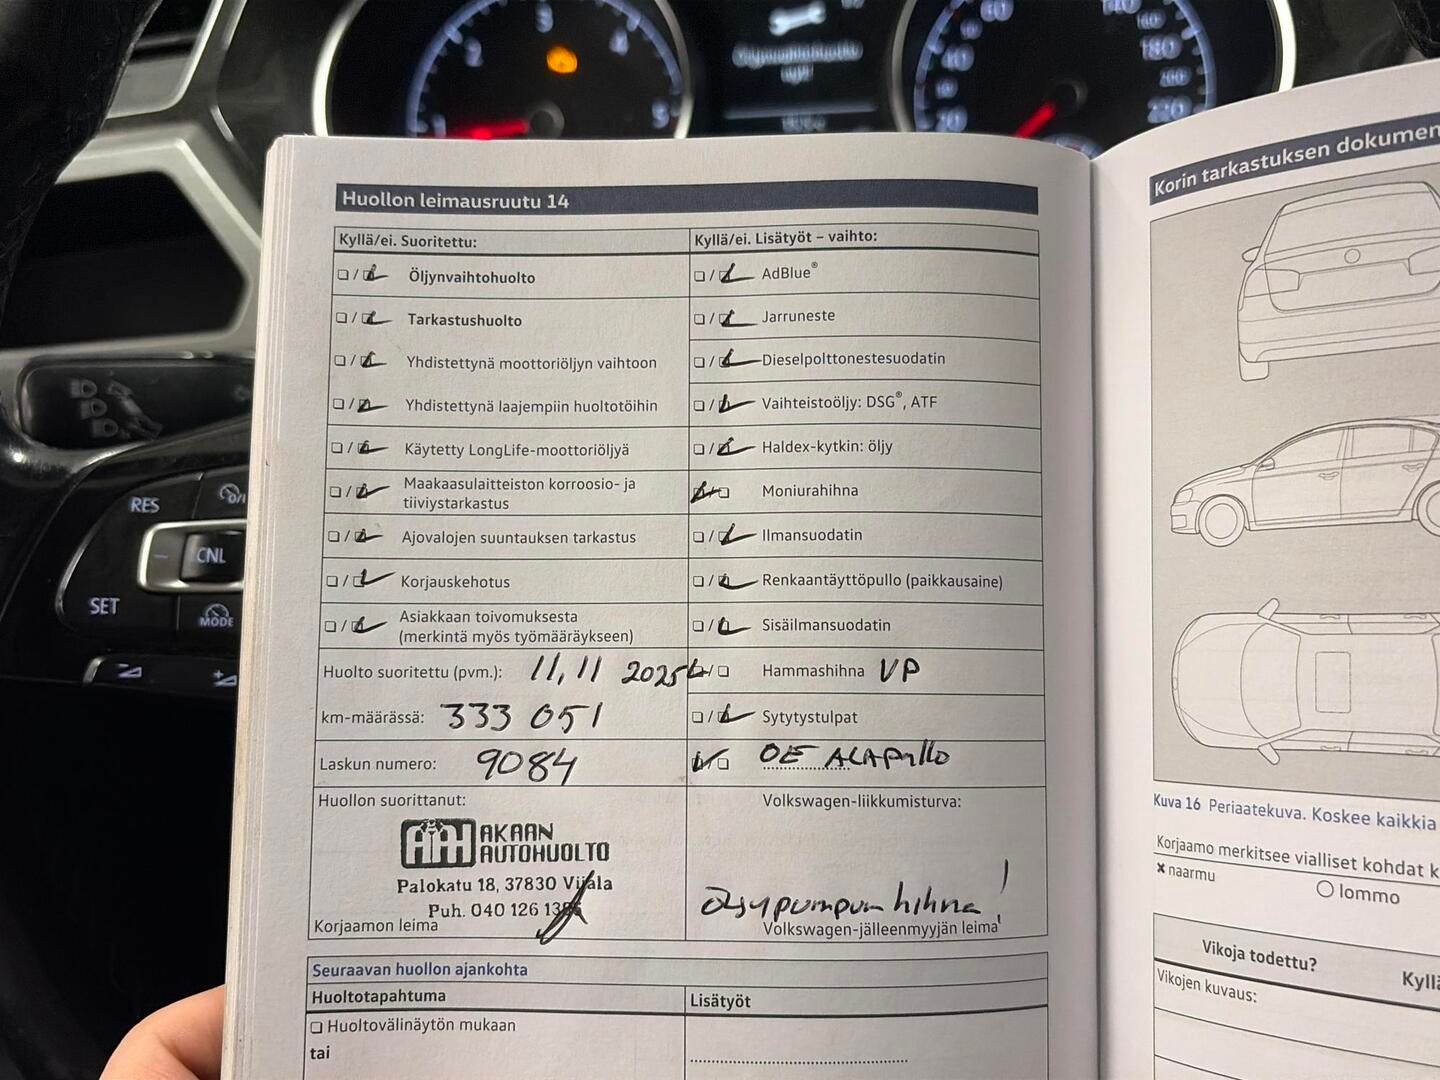 3
2
4
1
5
60
40
20
140
160
180
200
220
RES
CNL
SET
MODE
Huollon leimausruutu 14
Kyllä/ei. Suoritettu:
Öljynvaihtohuolto
Tarkastushuolto
Yhdistettynä moottoriöljyn vaihtoon
Yhdistettynä laajempiin huoltotöihin
Käytetty LongLife-moottoriöljyä
Maakaasulaitteiston korroosio- ja
tiiviystarkastus
Ajovalojen suuntauksen tarkastus
Korjauskehotus
Asiakkaan toivomuksesta
(merkintä myös työmääräykseen)
Huolto suoritettu (pvm.): 11.11 2025
km-määrässä: 333 051
Laskun numero: 9084
Huollon suorittanut:
AKAAN
AUTOHUOLTO
Palokatu 18, 37830 Viiala
Puh. 040 126
Korjaamon leima
Kyllä/ei. Lisätyöt – vaihto:
AdBlue®
Jarruneste
Dieselpolttonestesuodatin
Vaihteistoöljy: DSG®, ATF
Haldex-kytkin: öljy
Moniurahihna
Ilmansuodatin
Renkaantäyttöpullo (paikkausaine)
Sisäilmansuodatin
Hammashihna VP
Sytytystulpat
Volkswagen-liikkumisturva:
Öljypumpun hihna!
Volkswagen-jälleenmyyjän leima
Seuraavan huollon ajankohta
Huoltotapahtuma
Lisätyöt
Huoltovälinäytön mukaan
tai
Korin tarkastuksen dokumen
Kuva 16 Periaatekuva. Koskee kaikkia
Korjaamo merkitsee vialliset kohdat k
× naarmu
○ lommo
Vikoja todettu?
Kyllä
Vikojen kuvaus: